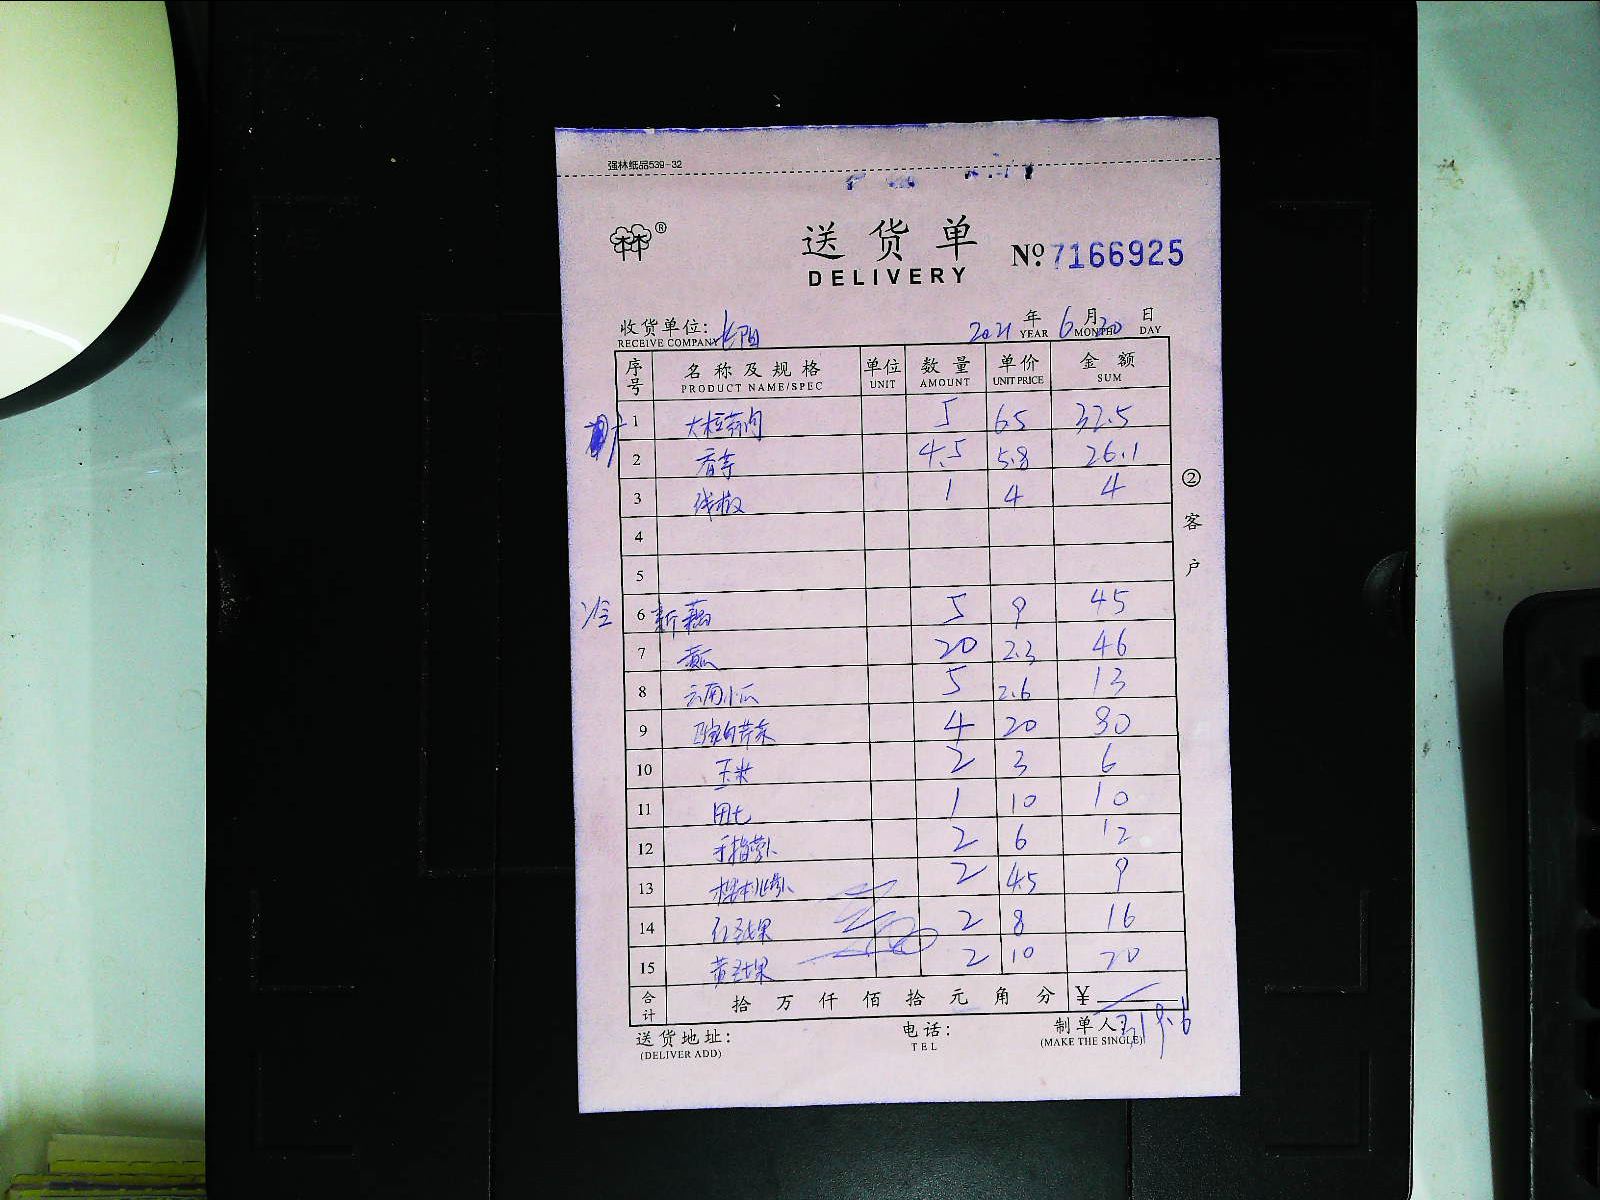 强林纸品539-32
林林®
送货单
DELIVERY
Nº 7166925
收货单位: 长阳 2021年 6月 20日
RECEIVE COMPANY YEAR MONTH DAY
序号 名称及规格 单位 数量 单价 金额
PRODUCT NAME/SPEC UNIT AMOUNT UNIT PRICE SUM
1 大粒蒜肉 5 6.5 32.5
2 香芋 4.5 5.8 26.1
3 线椒 1 4 4
4
5
冷 6 新藕 5 9 45
7 黄瓜 20 2.3 46
8 云南小瓜 5 2.6 13
9 芹菜 4 20 80
10 玉米 2 3 6
11 田七 1 10 10
12 手指萝卜 2 6 12
13 樱桃萝卜 2 4.5 9
14 红圣女果 2 8 16
15 黄圣女果 2 10 20
合计 拾万仟佰拾元角分 ¥
319.6
送货地址: 电话: 制单人:
(DELIVER ADD) TEL (MAKE THE SINGLE)
②客户